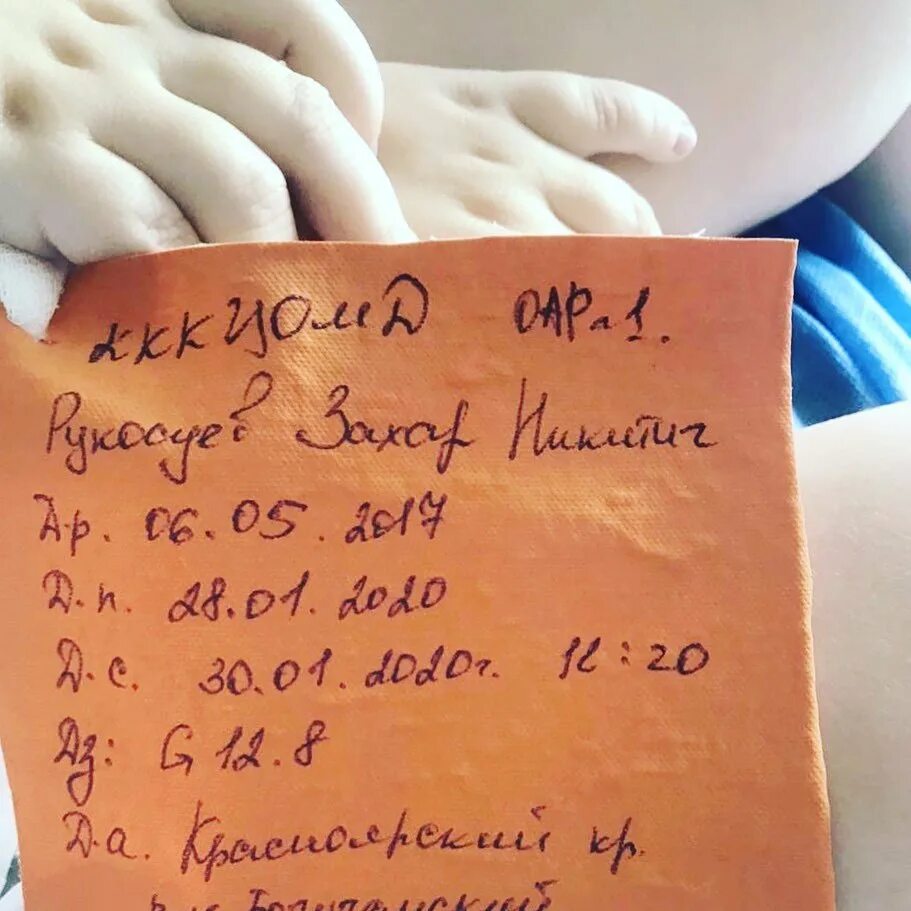 ККК ЦОМД ОАР-1.
Рукосуев Захар Никитич
Д.р. 06.05.2017
Д.п. 28.01.2020
Д.с. 30.01.2020г. 12:20
Дз: G 12.8
Д.а. Красноярский кр.
р-н Богучанский